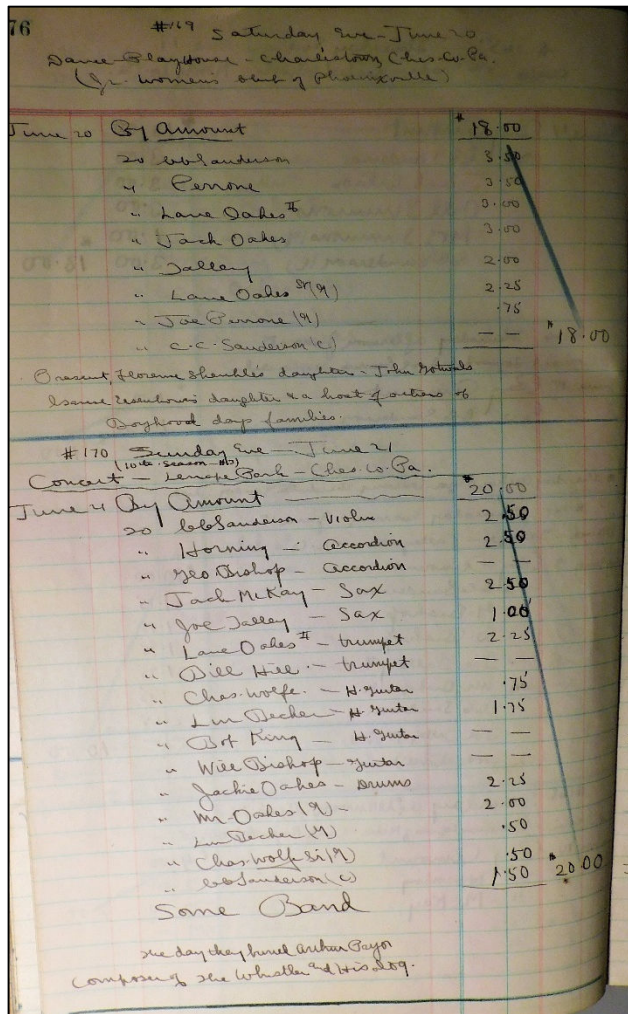 76
#169 Saturday Eve - June 20
Dance - Playhouse - Charlestown, Ches. Co. Pa.
(Jr. Women's Club of Phoenixville)
June 20 By Amount $18.00
20 CCSanderson 3.50
" Perrone 3.50
" Lane Oakes II 3.00
" Jack Oakes 3.00
" Talley 2.00
" Lane Oakes Sr (M) 2.25
" Joe Perrone (M) .75
" C.C. Sanderson (C) — — $18.00
Present, Florence Shenkle's daughter - John Gotwals
Isaac Eisenhower's daughter & a host of others of
Boyhood days families.
#170 Sunday Eve - June 21
(10th Season - )
Concert - Lenape Park - Ches. Co. Pa.
June 21 By Amount $20.00
20 CCSanderson - Violin 2.50
" Horning - Accordion 2.50
" Geo Bishop - Accordion — —
" Jack McKay - Sax 2.50
" Joe Talley - Sax 1.00
" Lane Oakes II - trumpet 2.25
" Bill Hill - trumpet — —
" Chas. Wolfe - H. Guitar .75
" Lin Decker - H. Guitar 1.75
" Bot King - H. Guitar — —
" Will Bishop - Guitar — —
" Jackie Oakes - Drums 2.25
" Mr. Oakes (M) - 2.00
" Lin Decker (M) .50
" Chas. Wolfe Sr (M) .50
" CCSanderson (C) 1.50 $20.00
Some Band
The day they buried Arthur Pryor
Composer of The Whistler and His Dog.